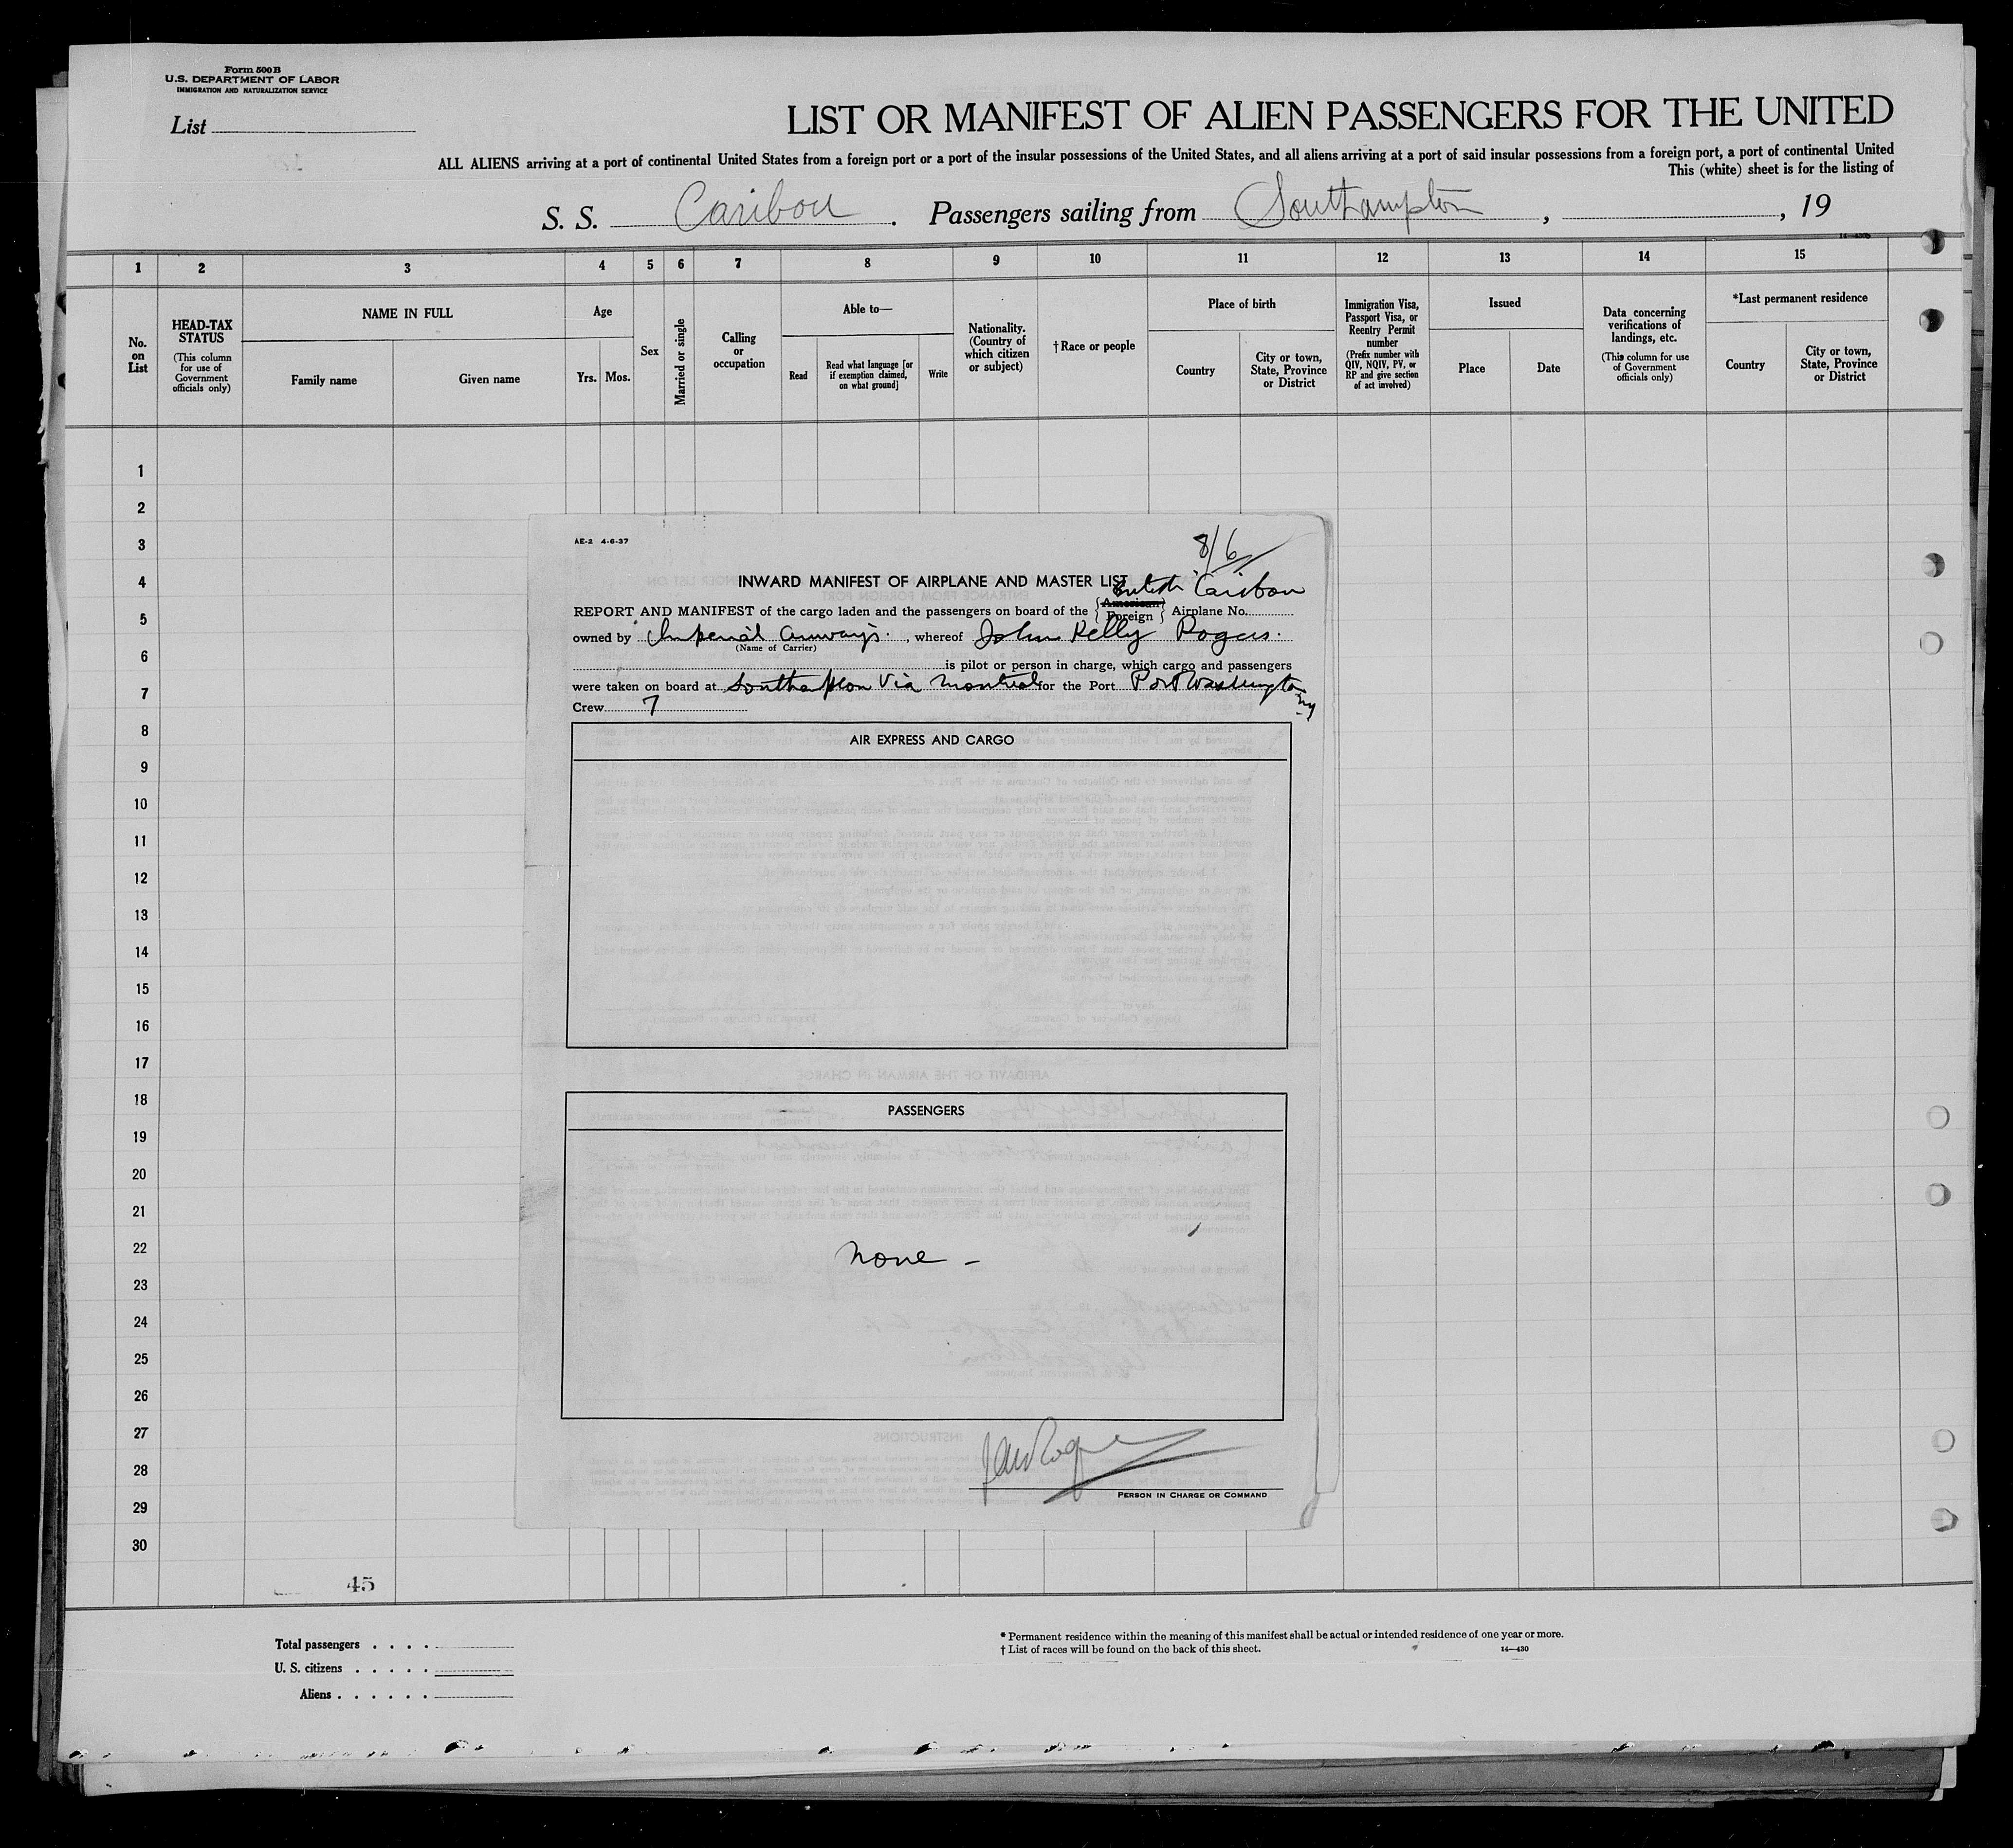 Form 500 B
U.S. DEPARTMENT OF LABOR
IMMIGRATION AND NATURALIZATION SERVICE
List
LIST OR MANIFEST OF ALIEN PASSENGERS FOR THE UNITED
ALL ALIENS arriving at a port of continental United States from a foreign port or a port of the insular possessions of the United States, and all aliens arriving at a port of said insular possessions from a foreign port, a port of continental United
This (white) sheet is for the listing of
S. S. Caribou. Passengers sailing from Southampton, , 19
1 2 3 4 5 6 7 8 9 10 11 12 13 14 15
No. on List
HEAD-TAX STATUS
(This column for use of Government officials only)
NAME IN FULL
Family name
Given name
Age
Yrs. Mos.
Sex
Married or single
Calling or occupation
Able to—
Read
Read what language [or if exemption claimed, on what ground]
Write
Nationality. (Country of which citizen or subject)
†Race or people
Place of birth
Country
City or town, State, Province or District
Immigration Visa, Passport Visa, or Reentry Permit number
(Prefix number with QIV, NQIV, PV, or RP and give section of act involved)
Issued
Place
Date
Data concerning verifications of landings, etc.
(This column for use of Government officials only)
*Last permanent residence
Country
City or town, State, Province or District
1
2
3
4
5
6
7
8
9
10
11
12
13
14
15
16
17
18
19
20
21
22
23
24
25
26
27
28
29
30
AE-2 4-6-37
8/6
INWARD MANIFEST OF AIRPLANE AND MASTER LIST
British Caribou
REPORT AND MANIFEST of the cargo laden and the passengers on board of the {American Foreign} Airplane No.
owned by Imperial Airways., whereof John Kelly Rogers.
(Name of Carrier)
is pilot or person in charge, which cargo and passengers
were taken on board at Southampton Via Montreal for the Port Port Washington NY
Crew 7
AIR EXPRESS AND CARGO
PASSENGERS
None -
PERSON IN CHARGE OR COMMAND
45
Total passengers . . . .
U. S. citizens . . . . .
Aliens . . . . . .
* Permanent residence within the meaning of this manifest shall be actual or intended residence of one year or more.
† List of races will be found on the back of this sheet.
14—430